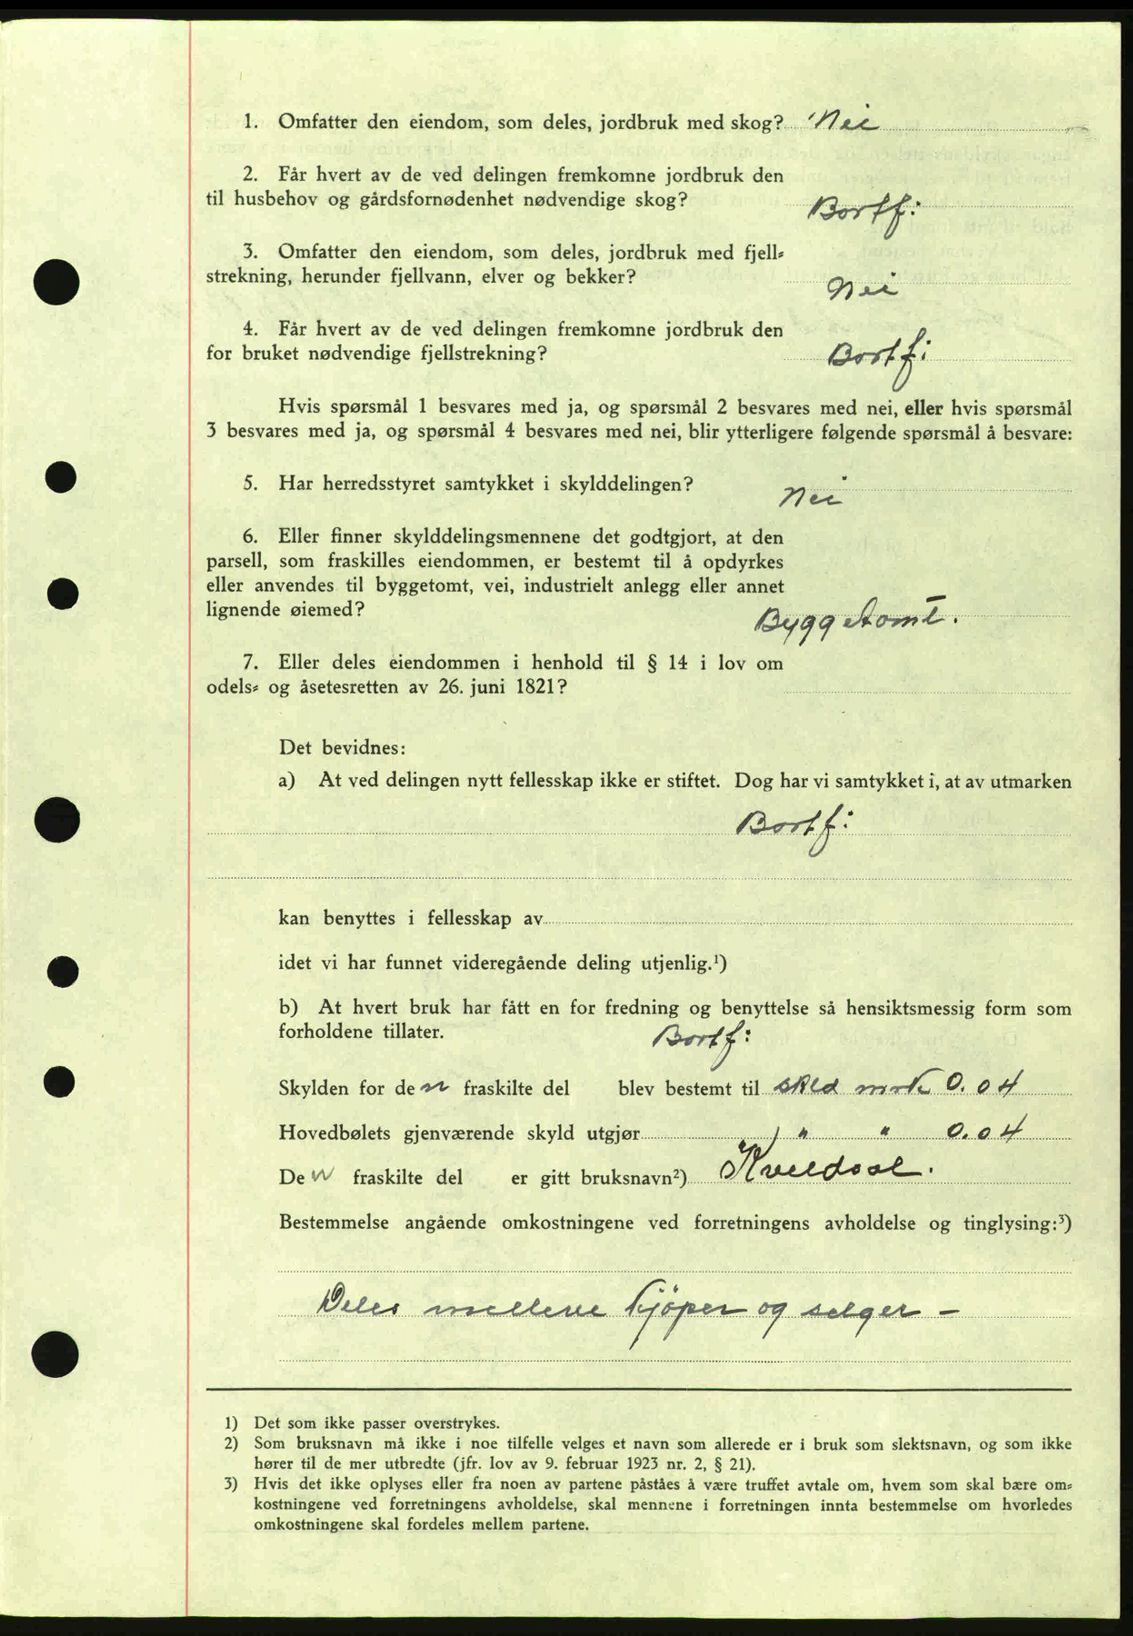 1. Omfatter den eiendom, som deles, jordbruk med skog? Nei
2. Får hvert av de ved delingen fremkomne jordbruk den
til husbehov og gårdsfornødenhet nødvendige skog? Bortf:
3. Omfatter den eiendom, som deles, jordbruk med fjell=
strekning, herunder fjellvann, elver og bekker? Nei
4. Får hvert av de ved delingen fremkomne jordbruk den
for bruket nødvendige fjellstrekning? Bortf:
Hvis spørsmål 1 besvares med ja, og spørsmål 2 besvares med nei, eller hvis spørsmål
3 besvares med ja, og spørsmål 4 besvares med nei, blir ytterligere følgende spørsmål å besvare:
5. Har herredsstyret samtykket i skylddelingen? Nei
6. Eller finner skylddelingsmennene det godtgjort, at den
parsell, som fraskilles eiendommen, er bestemt til å opdyrkes
eller anvendes til byggetomt, vei, industrielt anlegg eller annet
lignende øiemed? Byggetomt.
7. Eller deles eiendommen i henhold til § 14 i lov om
odels= og åsetesretten av 26. juni 1821?
Det bevidnes:
a) At ved delingen nytt fellesskap ikke er stiftet. Dog har vi samtykket i, at av utmarken
Bortf:
kan benyttes i fellesskap av
idet vi har funnet videregående deling utjenlig.¹)
b) At hvert bruk har fått en for fredning og benyttelse så hensiktsmessig form som
forholdene tillater. Bortf:
Skylden for den fraskilte del blev bestemt til skld mrk 0.04
Hovedbølets gjenværende skyld utgjør " " 0.04
Den fraskilte del er gitt bruksnavn²) Kveldsol.
Bestemmelse angående omkostningene ved forretningens avholdelse og tinglysing:³)
Deles mellem kjöper og selger –
1) Det som ikke passer overstrykes.
2) Som bruksnavn må ikke i noe tilfelle velges et navn som allerede er i bruk som slektsnavn, og som ikke
hører til de mer utbredte (jfr. lov av 9. februar 1923 nr. 2, § 21).
3) Hvis det ikke oplyses eller fra noen av partene påståes å være truffet avtale om, hvem som skal bære om=
kostningene ved forretningens avholdelse, skal mennene i forretningen innta bestemmelse om hvorledes
omkostningene skal fordeles mellem partene.